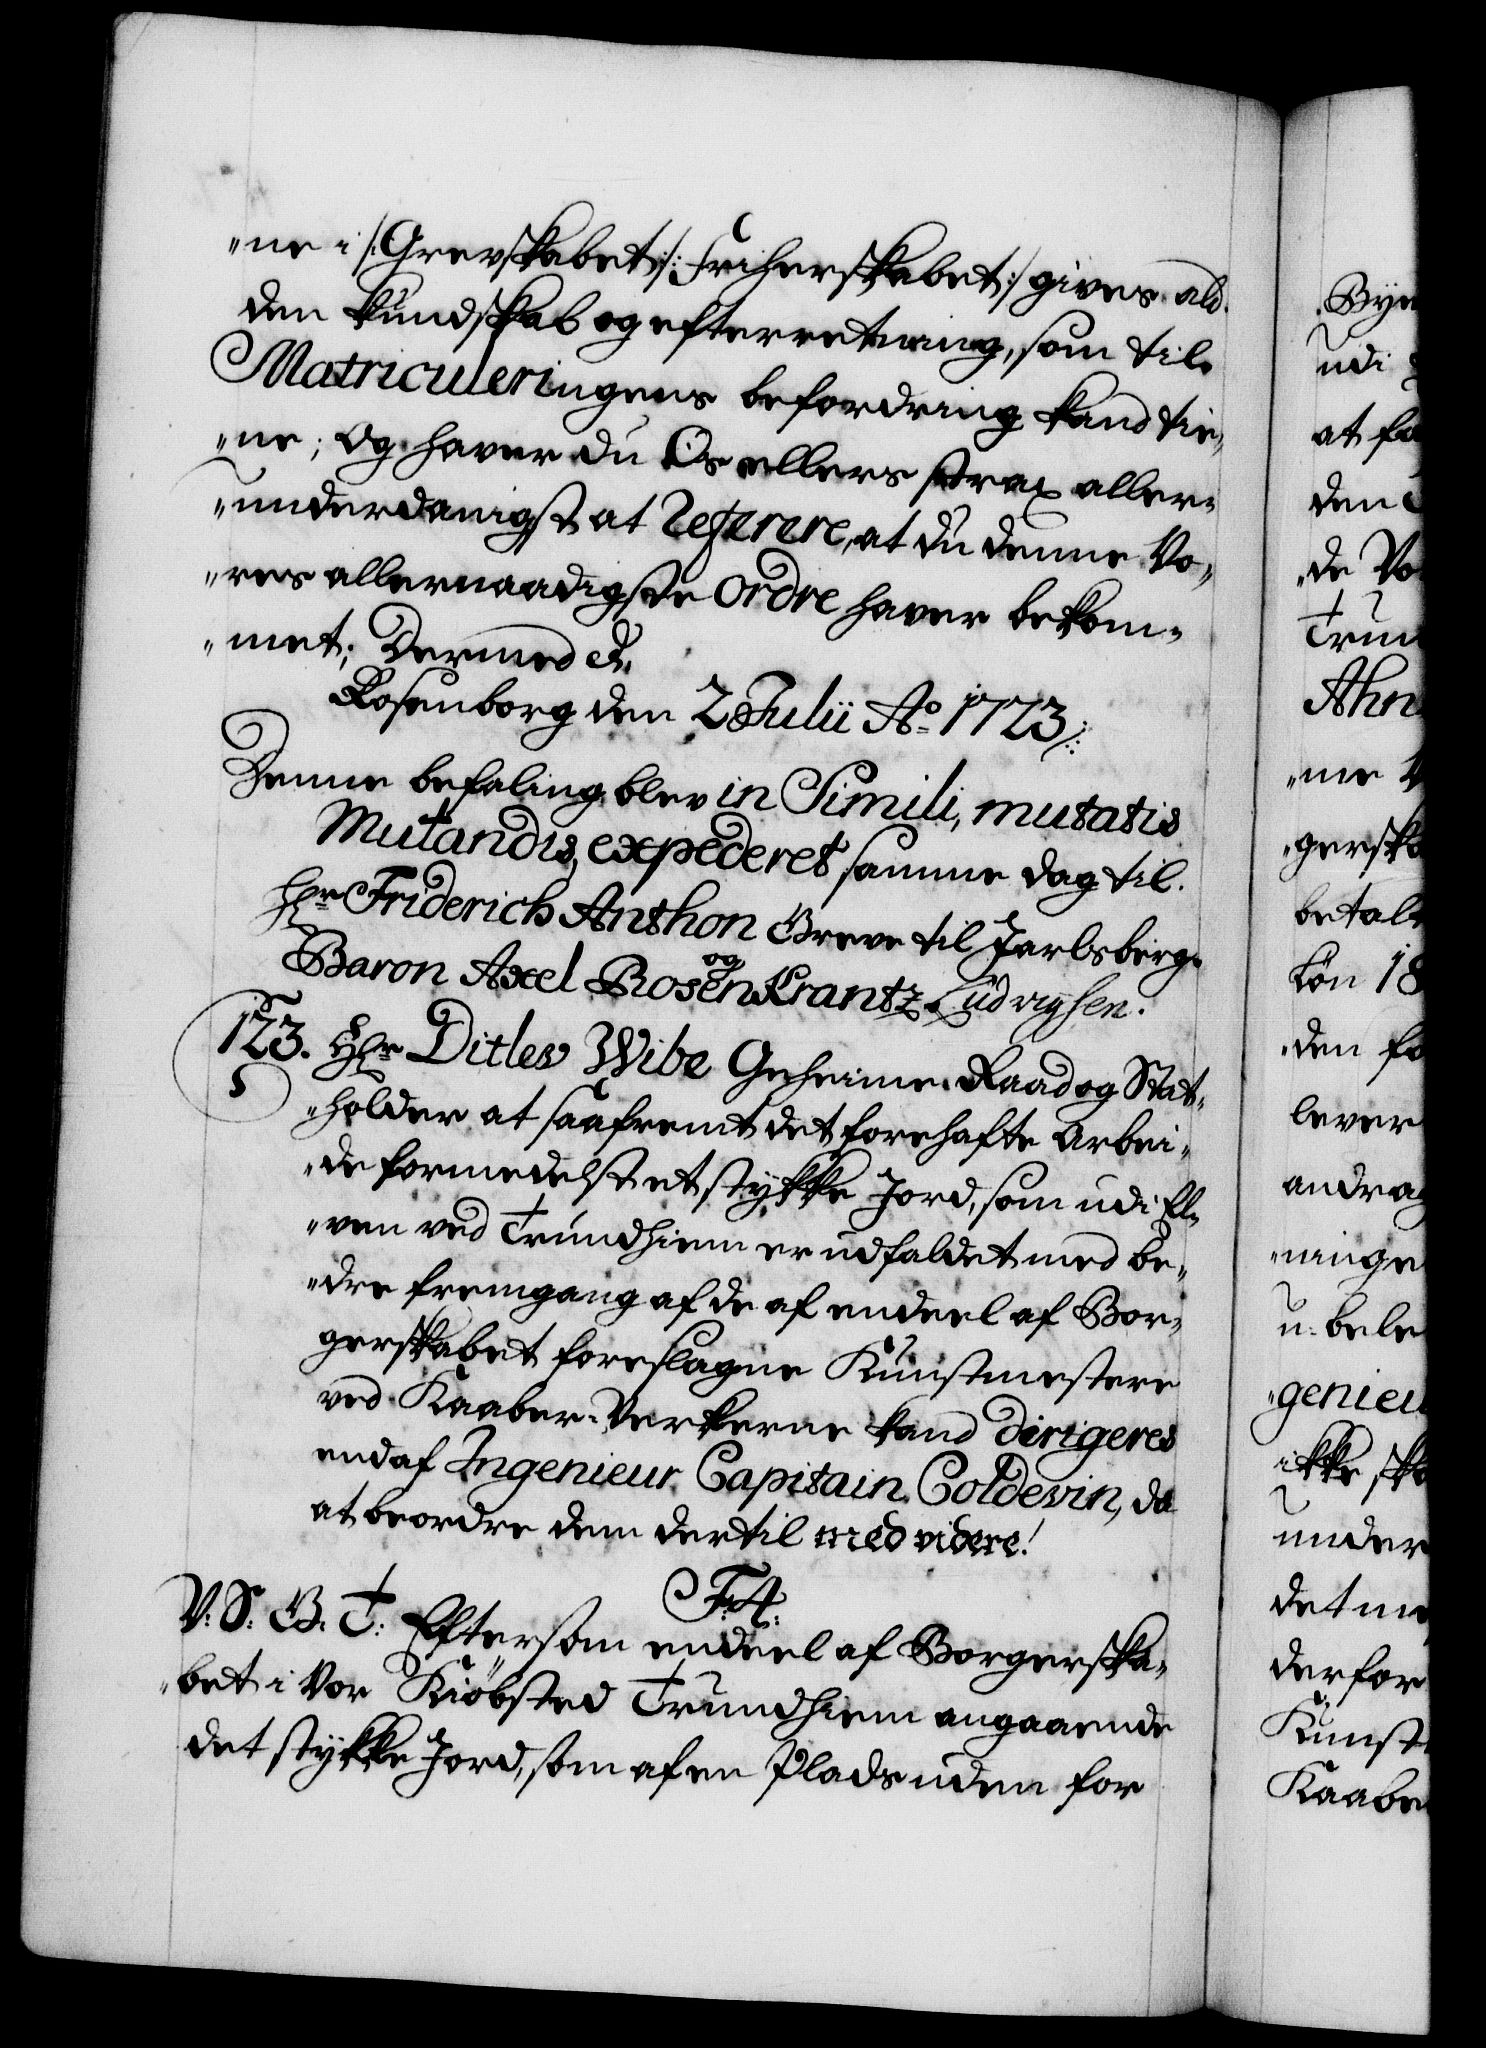 "ne i /: Grevskabet :/: Friherskabet :/ gives ald
den kundskab og efterretning, som til
Matriculeringens befordring kand tie„
"ne; Og haver du Os ellers strax aller„
"underdanigst at Referere, at du denne Vo„
"res allernaadigste Ordre haver bekom„
"met; Dermed &.
Rosenborg den 2 Julii Ao 1723 /:
Denne befaling blev in Simili, mutatis
Mutandis, expederet samme dag til.
Hr Friderich Anthon Greve til Jarlsberg.
og
Baron Axel Rosenkrantz Ludvigsen.
123. Hr Ditlev Wibe Geheime Raad og Stat„
5
"holder at saafremt det forehafte Arbei„
"de formedelst et stykke Jord, som udi El„
"ven ved Trundhiem er udfaldet med be„
"dre fremgang af de af endeel af Bor„
gerskabet foreslagne Kunstmestere
ved Kaaber-Verkerne kand dirigeres
end af Ingenieur Capitain Coldevin, da
at beordre dem dertil med videre!
F: 4:
V: S: G: T: Eftersom endeel af Borgerska„
"bet i Vor Kiöbsted Trundhiem angaaende
det stykke Jord, som af en Plads uden for
Byen
udi
at fo
den
"de Vo
Trun
Ahn
"me V
"gerska
betale
Lön 18
"den fo
lever
andrag
"ninge
u-bele
"genieu
ikke ska
under
det me
derfor
Kunst
Kaabe